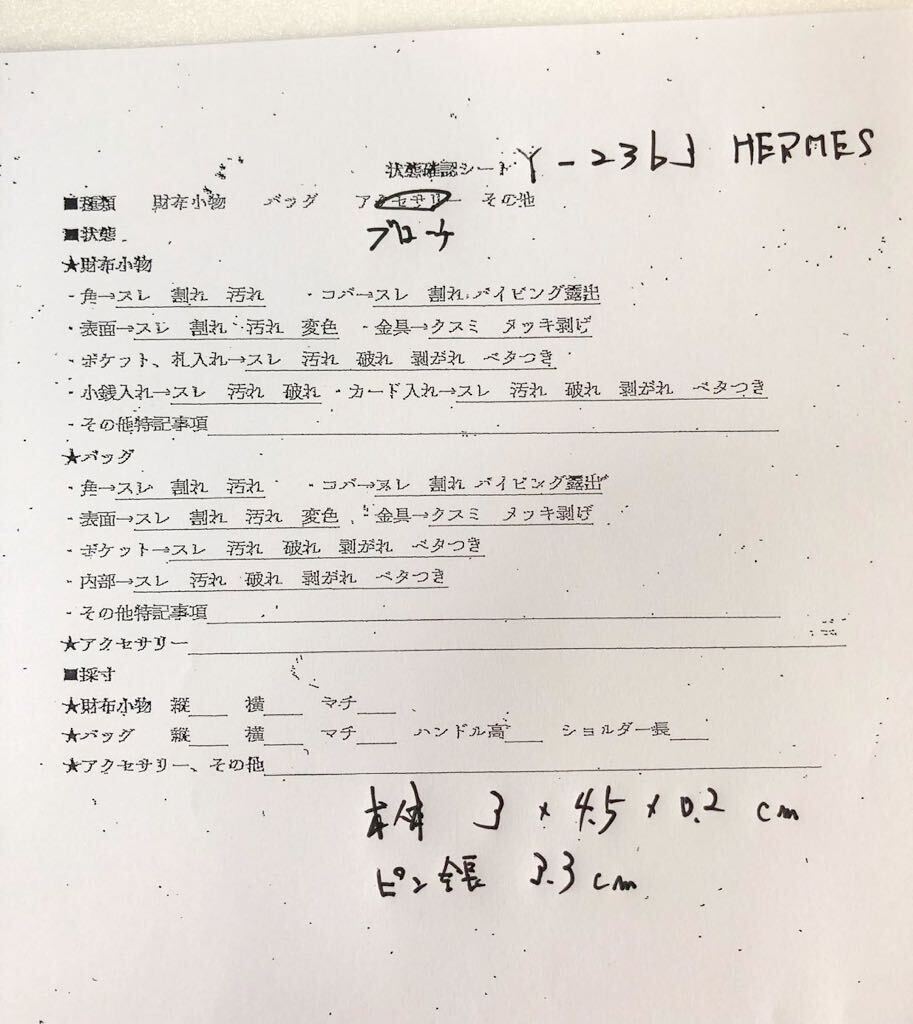 状態確認シート Y-236J HERMES
■種類 財布小物 バッグ アクセサリー その他
■状態 ブローチ
★財布小物
・角→スレ 割れ 汚れ ・コバ→スレ 割れ パイピング露出
・表面→スレ 割れ 汚れ 変色 ・金具→クスミ メッキ剥げ
・ポケット、札入れ→スレ 汚れ 破れ 剥がれ ベタつき
・小銭入れ→スレ 汚れ 破れ ・カード入れ→スレ 汚れ 破れ 剥がれ ベタつき
・その他特記事項
★バッグ
・角→スレ 割れ 汚れ ・コバ→スレ 割れ パイピング露出
・表面→スレ 割れ 汚れ 変色 ・金具→クスミ メッキ剥げ
・ポケット→スレ 汚れ 破れ 剥がれ ベタつき
・内部→スレ 汚れ 破れ 剥がれ ベタつき
・その他特記事項
★アクセサリー
■採寸
★財布小物 縦 横 マチ
★バッグ 縦 横 マチ ハンドル高 ショルダー長
★アクセサリー、その他
本体 3 × 4.5 × 0.2 cm
ピン全長 3.3 cm